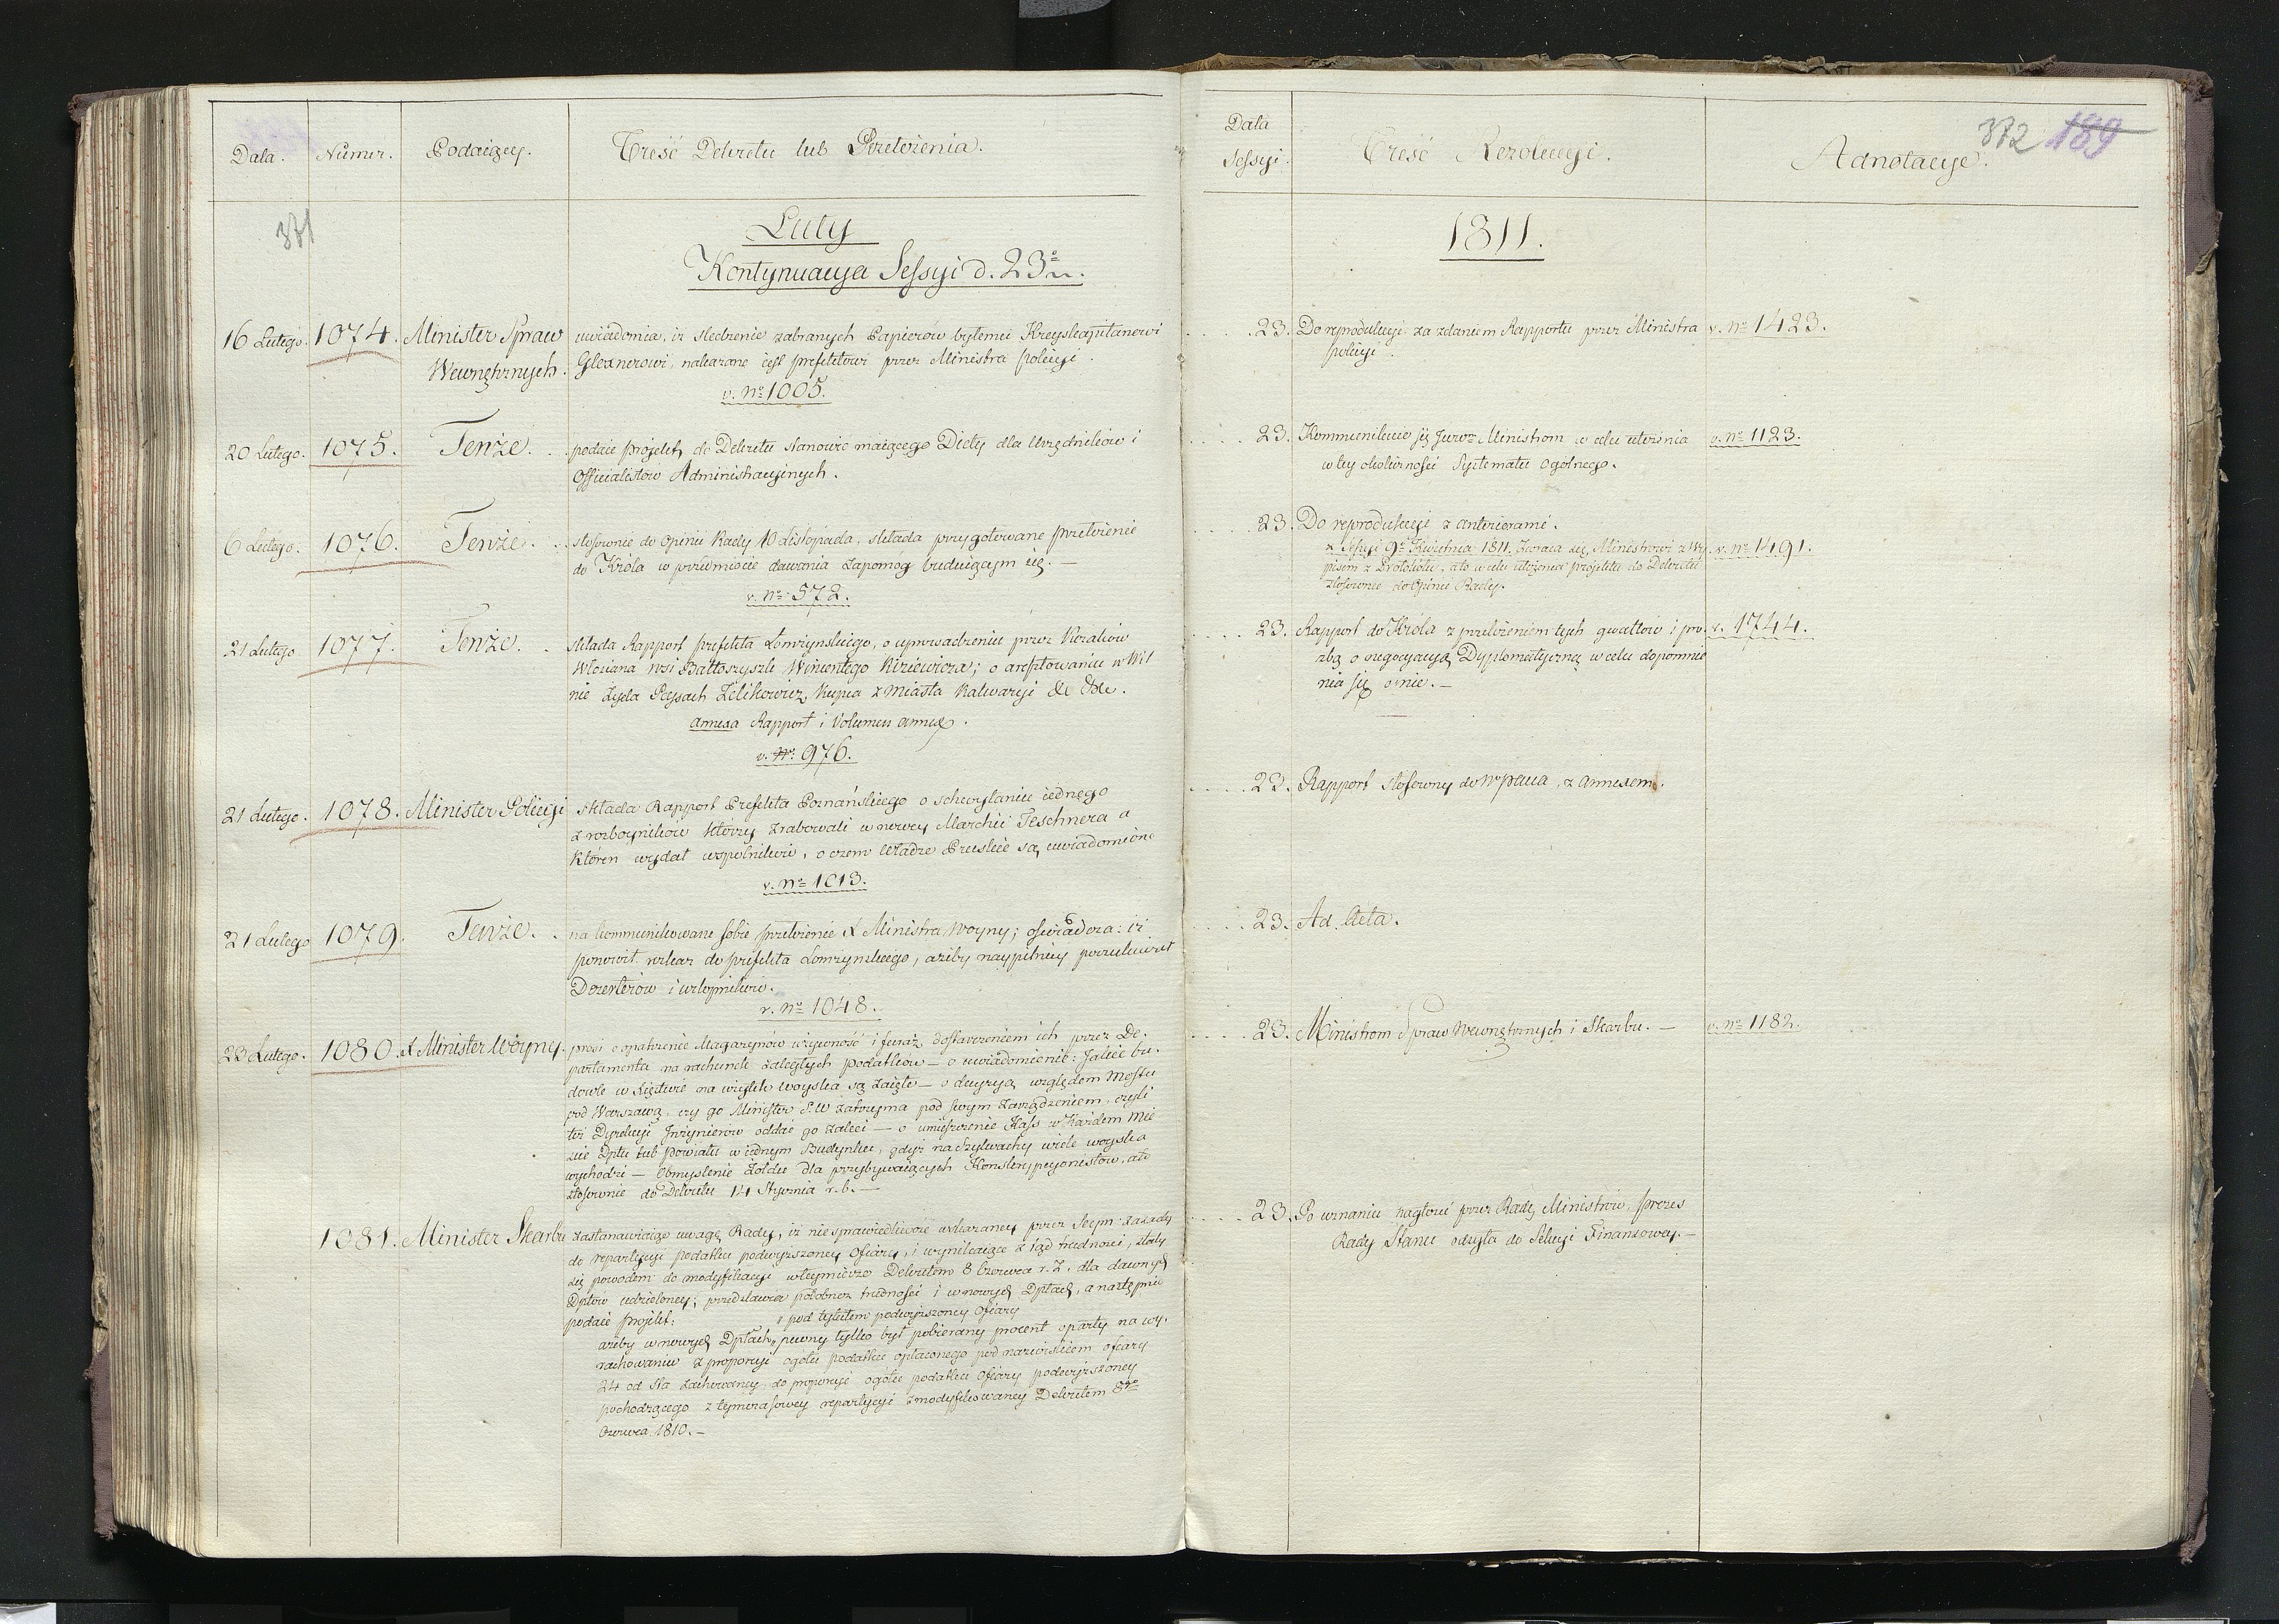 Data.
Numer.
Podaiący.
Treść Dekretu lub Przełożenia.
371
Luty
Kontynuacya Sessyi d. 23º
16 Lutego. 1074. Minister Spraw
Wewnętrznych.
uwiadomia, iż śledzenie zabranych Papierów byłemu Kreyskapitanowi
Glexnerowi, nakazane iest prefektowi przez Ministra policyi.
v. Nº 1005.
20 Lutego. 1075. Tenże.
podaie projekt do Dekretu stanowić maiącego Diety dla Urzędników i
Officialistów Administracyinych.
6 Lutego. 1076. Tenże.
stosownie do Opinii Rady 10 Listopada, składa przygotowane przełożenie
do Króla w przedmiocie dawania zapomog buduiącym się. —
v. Nº 572.
21 Lutego 1077. Tenże.
składa Rapport prefekta Łomżynskiego, o uprowadzeniu przez Kozaków
Włościana wsi Bartoszyszk Wincentego Kiziewicza; o aresztowaniu w Wil
nie Żyda Peysach Zelikowicz, Kupca z miasta Kalwaryi &c &c.
annexa Rapport i Volumen annex.
v. Nº 976.
21 Lutego. 1078. Minister Policyi
składa Rapport Prefekta Poznańskiego o schwytaniu iednego
z rozboyników którzy zrabowali w nowey Marchii Teschnera a
któren wydał wspolników, o czem Władze Pruskie są uwiadomione
v. Nº 1013.
21 Lutego 1079. Tenże.
na kommunikowane sobie przełożenie Z Ministra Woyny; oświadcza: iż
ponowił rozkaz do prefekta Łomżynskiego, ażeby naypilniey poszukiwał
Dezerterów i urlopników.
v. Nº 1048.
23 Lutego. 1080. Z Minister Woyny.
prosi o opatrzenie Magazynów w żywność i furaż, dostarczeniem ich przez De-
partamenta na rachunek zaległych podatków — o uwiadomienie: Jakie bu-
dowle w Xięstwie na użytek woyska są zaięte — o decyzyą względem Mostu
pod Warszawą, czy go Minister S. W zatrzyma pod swym zarządzeniem, czyli
też Dyrekcyi Jnżynierów oddać go zaleci — o umieszczenie Kass w Każdem mie
ście Dptu lub powiatu w iednym Budynku, gdyż na Szylwachy wiele woyska
wychodzi — Obmyslenie Żołdu dla przybywaiących Konskrypcyonistów, a to
stosownie do Dekretu 14 Stycznia r. b. —
1081. Minister Skarbu
zastanawiaiąc uwagę Rady, iż niesprawiedliwość wskazaney przez Seym zasady
do repartycyi podatku podwyższoney Ofiary, i wynikaiące z tąd trudności, stały
się powodem do modyfikacyi w teymierze Dekretem 8 Czerwca r. z. dla dawnych
Dptów udzieloney; przedstawia podobneż trudności i w nowych Dptach, a następnie
podaie projekt:
pod tytułem podwyższoney Ofiary
ażeby w nowych Dptach, pewny tylko był pobierany procent oparty na wy-
rachowaniu z proporcyi ogółu podatku opłaconego pod nazwiskiem ofiary
24 od sta zachowaney do proporcyi ogółu podatku Ofiary podwyższoney
pochodzącego z teyżnieraźowey repartycyi zmodyfikowaney Dekretem 8go
Czerwca 1810. —
Data
Sessyi.
Treść Rezolucyi.
Adnotacye.
372 189
1811.
23. Do reprodukcyi za zdaniem Rapportu przez Ministra
policyi.
v. Nº 1423.
23. Kommunikuie się Jnnym Ministrom w celu ułożenia
w tey okoliczności Systematu ogólnego.
v. Nº 1123.
23. Do reprodukcyi z anterioramі.
z Sessyi 9º Kwietnia 1811. Zwraca się Ministrowi z Wy
pisem z Protokółu, a to w celu ułożenia projektu do Dekretu
stosownie do Opinii Rady.
v. Nº 1491.
23. Rapport do Króla z przełożeniem tych gwałtów i proź-
bą o negocyacyą Dyplomatyczną w celu dopomnie
nia się o nie. —
v. 1744.
23. Rapport stosowny do Nº pana, z annexem.
23. Ad Acta.
23. Ministrom Spraw Wewnętrznych i Skarbu. —
v. Nº 1182.
23. Po uznaniu nagłości przez Radę Ministrów, prezes
Rady Stanu odsyła do Sekcyi Finansowey. —